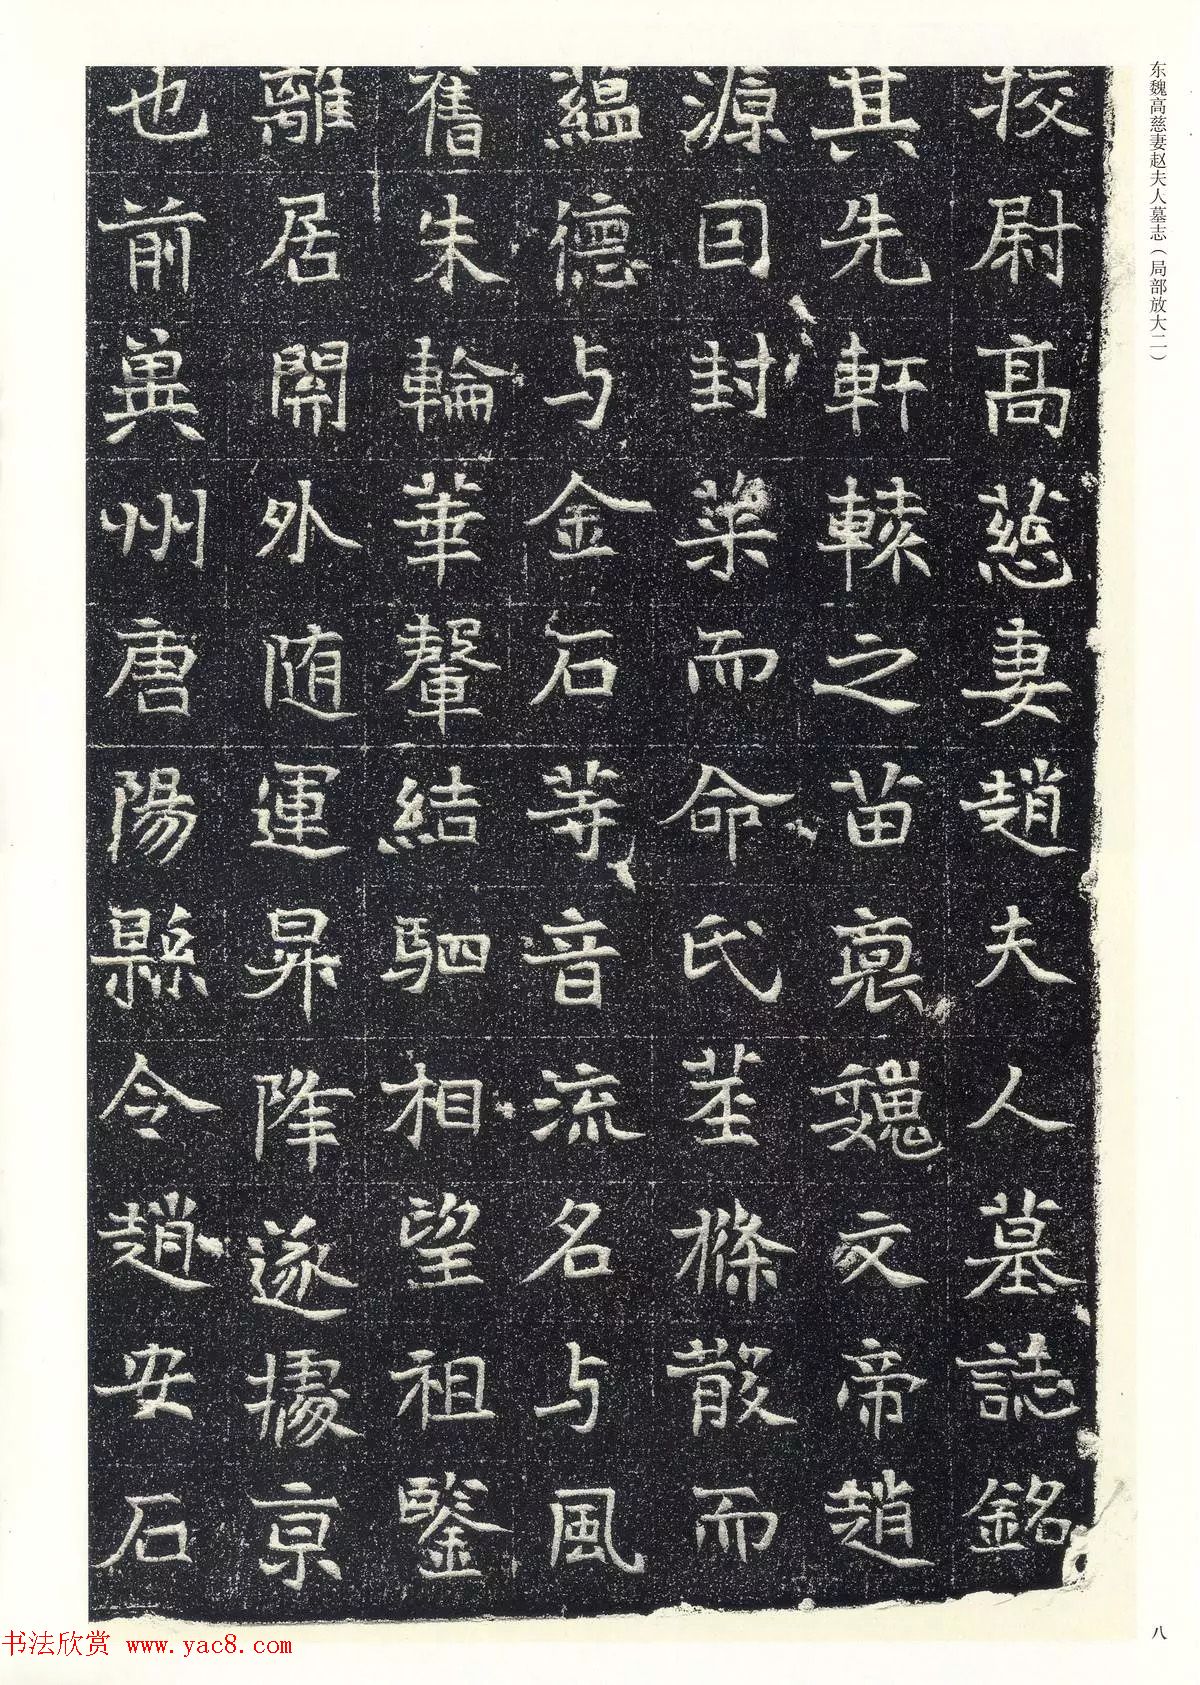 东魏高慈妻赵夫人墓志（局部放大二）
挍尉高慈妻趙夫人墓誌銘
其先軒轅之苗裔魏文帝趙
源囙封菜而命氏莖條散而
蘊德与金石等音流名与風
舊朱輪華輦結駟相望祖鑒
離居開外随運昇降遂據京
也前冀州唐陽縣令趙安石
八
书法欣赏 www.yac8.com